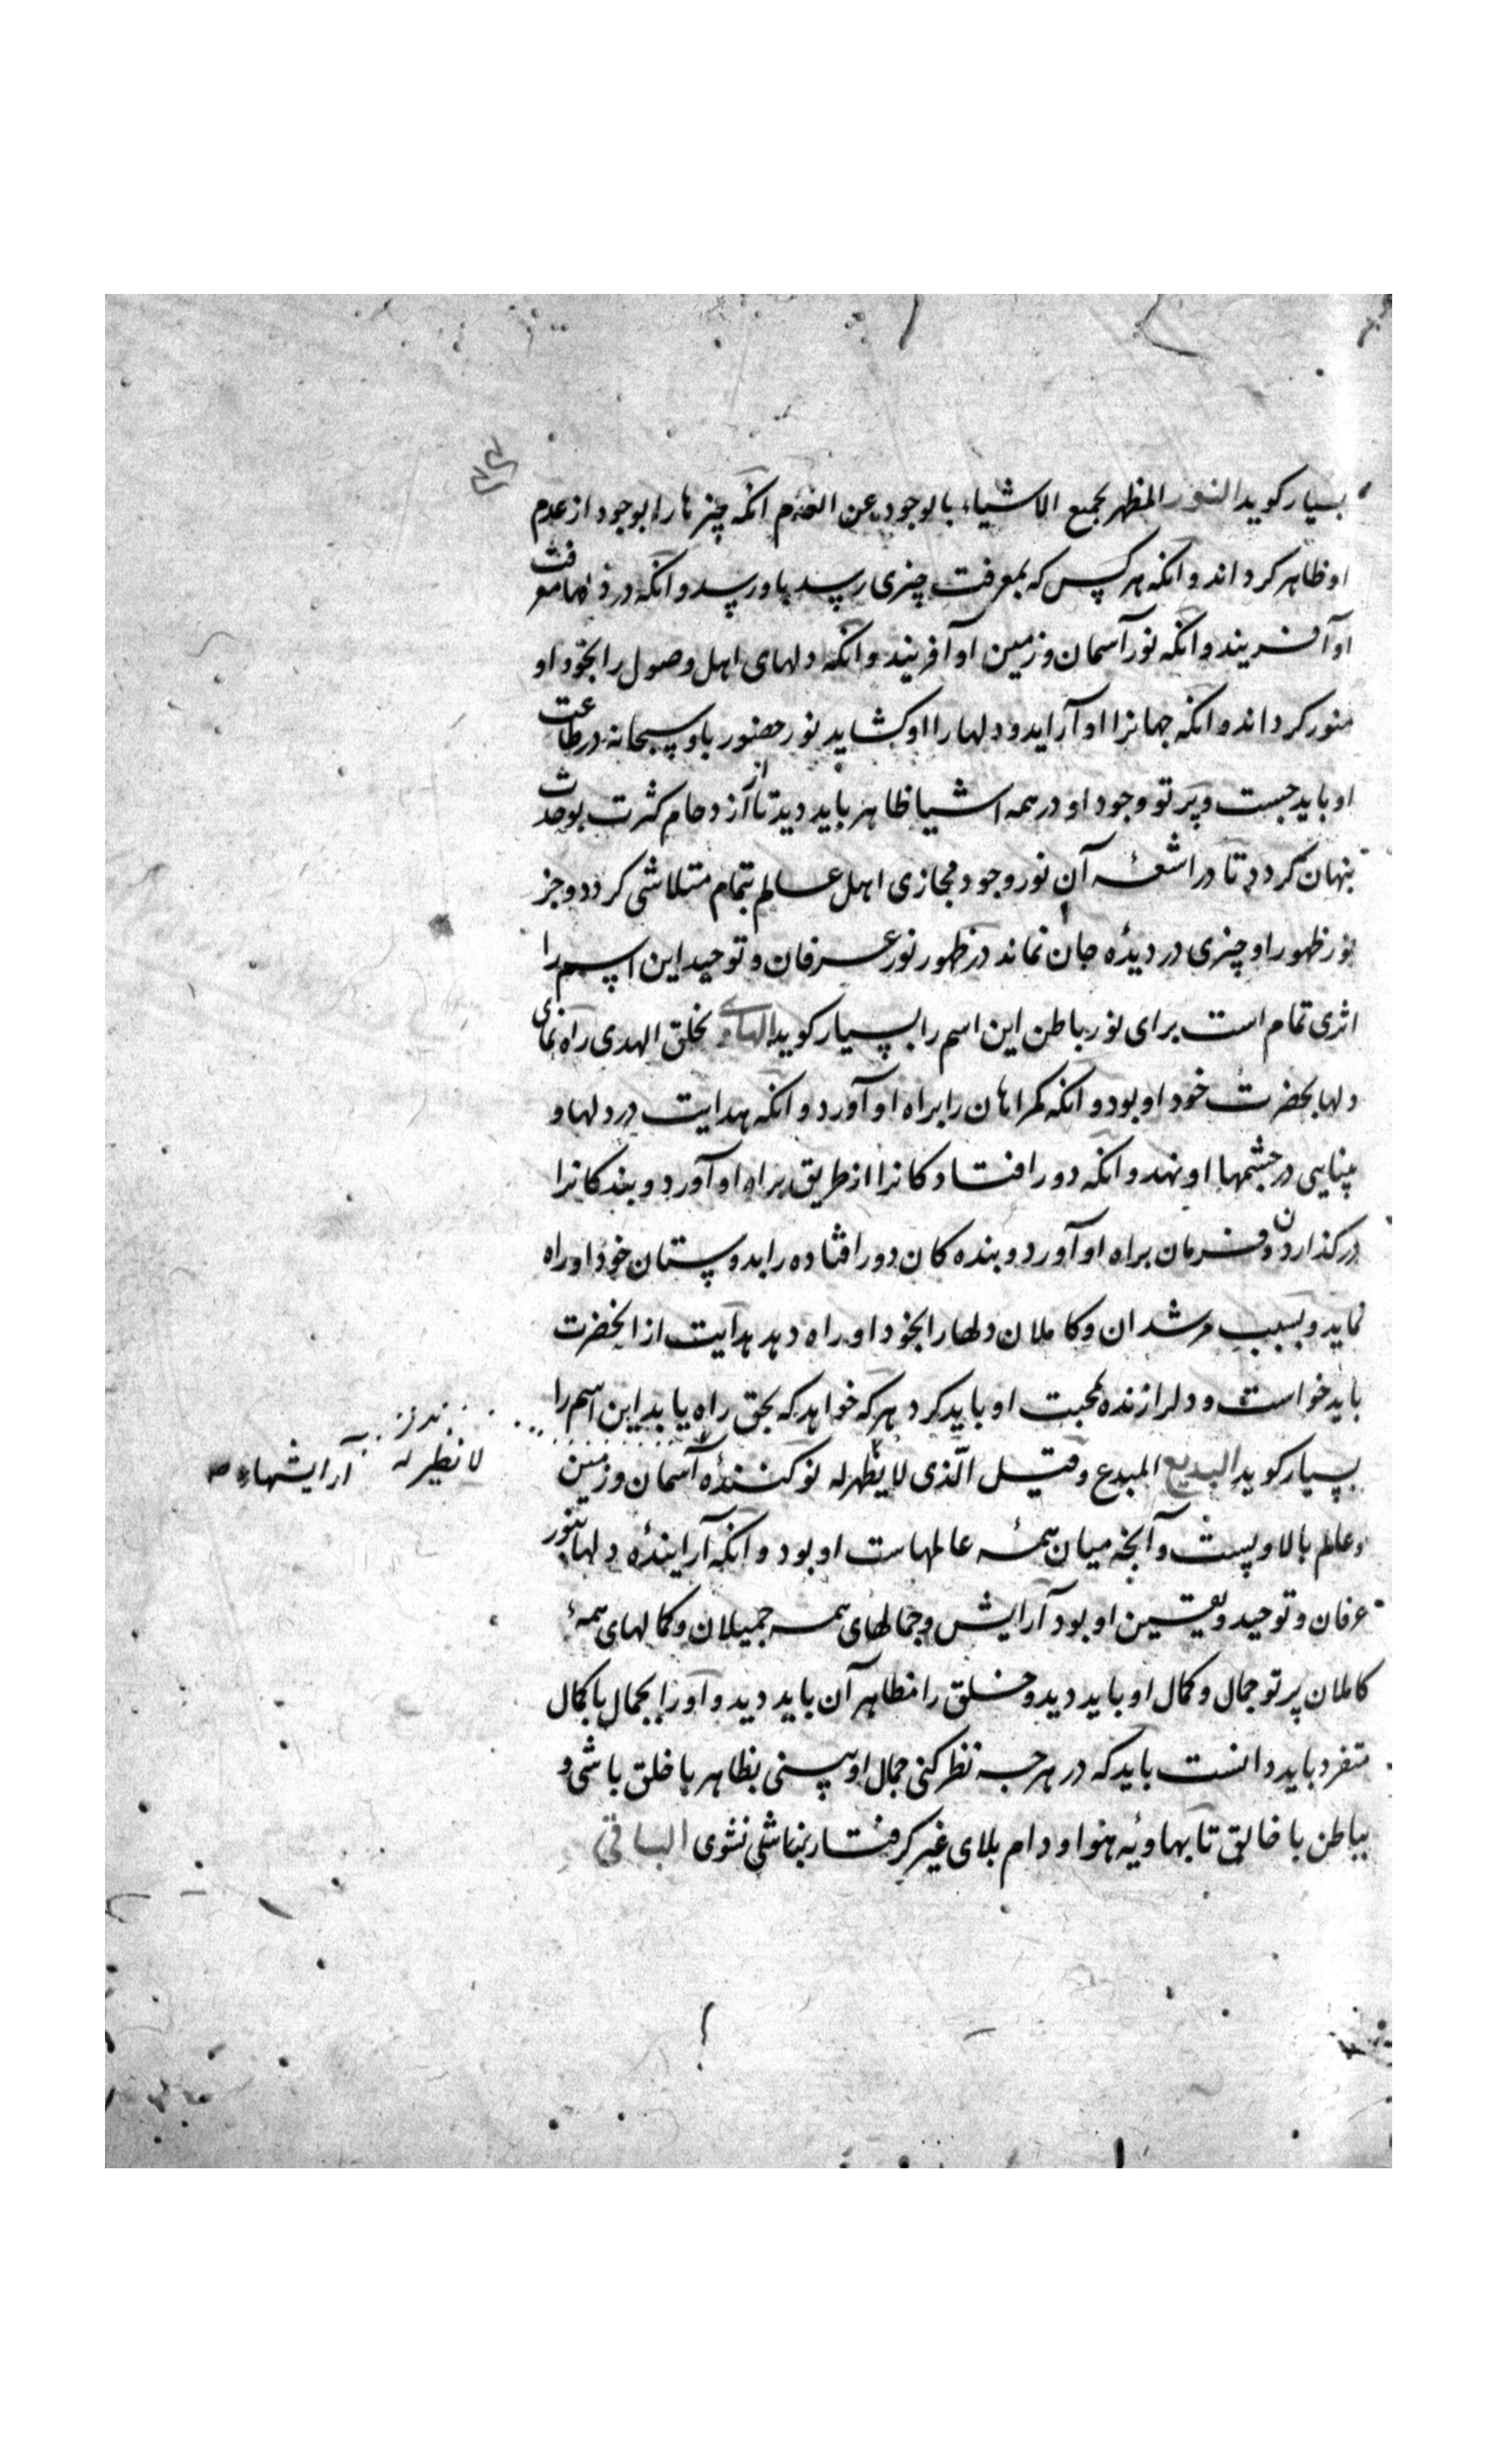 بسیار کوید النور المظهر لجمیع الاشیاء بالوجود عن العدم انکه چیزها را بوجود از عدم
او ظاهر کرداند و انکه هر کس که بمعرفت چیزی رسد باو رسد و انکه در دلها معرفت
او آفریند و انکه نور آسمان و زمین او آفریند و انکه دلهای اهل وصول را بخود او
منور کرداند و انکه جهانرا او آراید و دلها را او کشاید نور حضور باو سبحانه در طاعت
او باید جست و پرتو وجود او در همه اشیا ظاهر باید دید تا از ازدحام کثرت بوحدت
پنهان کردد تا در اشعهٔ آن نور وجود مجازی اهل عالم بتمام متلاشی کردد و جز
نور ظهور او چیزی در دیدهٔ جان نماند در ظهور نور عرفان و توحید این اسم را
اثری تمام است برای نور باطن این اسم را بسیار کوید الهادی خلق الهدی راه نمای
دلها بحضرت خود او بود و انکه کمراهان را براه او آورد و انکه هدایت در دلها و
بینایی در چشمها او نهد و انکه دور افتادکانرا از طریق براه او آورد و بندکانرا
در کذاردن فرمان براه او آورد و بنده کان دور افتاده را بدوستان خود او راه
نماید و بسبب مرشدان و کاملان دلها را بخود او راه دهد هدایت از انحضرت
باید خواست و دلرا زنده بمحبت او باید کرد هر که خواهد که بحق راه یابد این اسم را
بسیار کوید البدیع المبدع و قیل الّذی لا یظهر له نو کنندهٔ آسمان و زمین
لا نظیر له آرایشهاء
و عالم بالا و پست و آنچه میان همهٔ عالمهاست او بود و انکه آرایندهٔ دلها بنور
عرفان و توحید و یقین او بود آرایش و جمالهای همه جمیلان و کمالهای همهٔ
کاملان پرتو جمال و کمال او باید دید و خلق را مظاهر آن باید دید و او را بجمال با کمال
متفرد باید دانست باید که در هر چه نظر کنی جمال او بینی بظاهر با خلق باشی و
بباطن با خالق تا بهاویه هوا و دام بلای غیر کرفتار نباشی نشوی الباقی